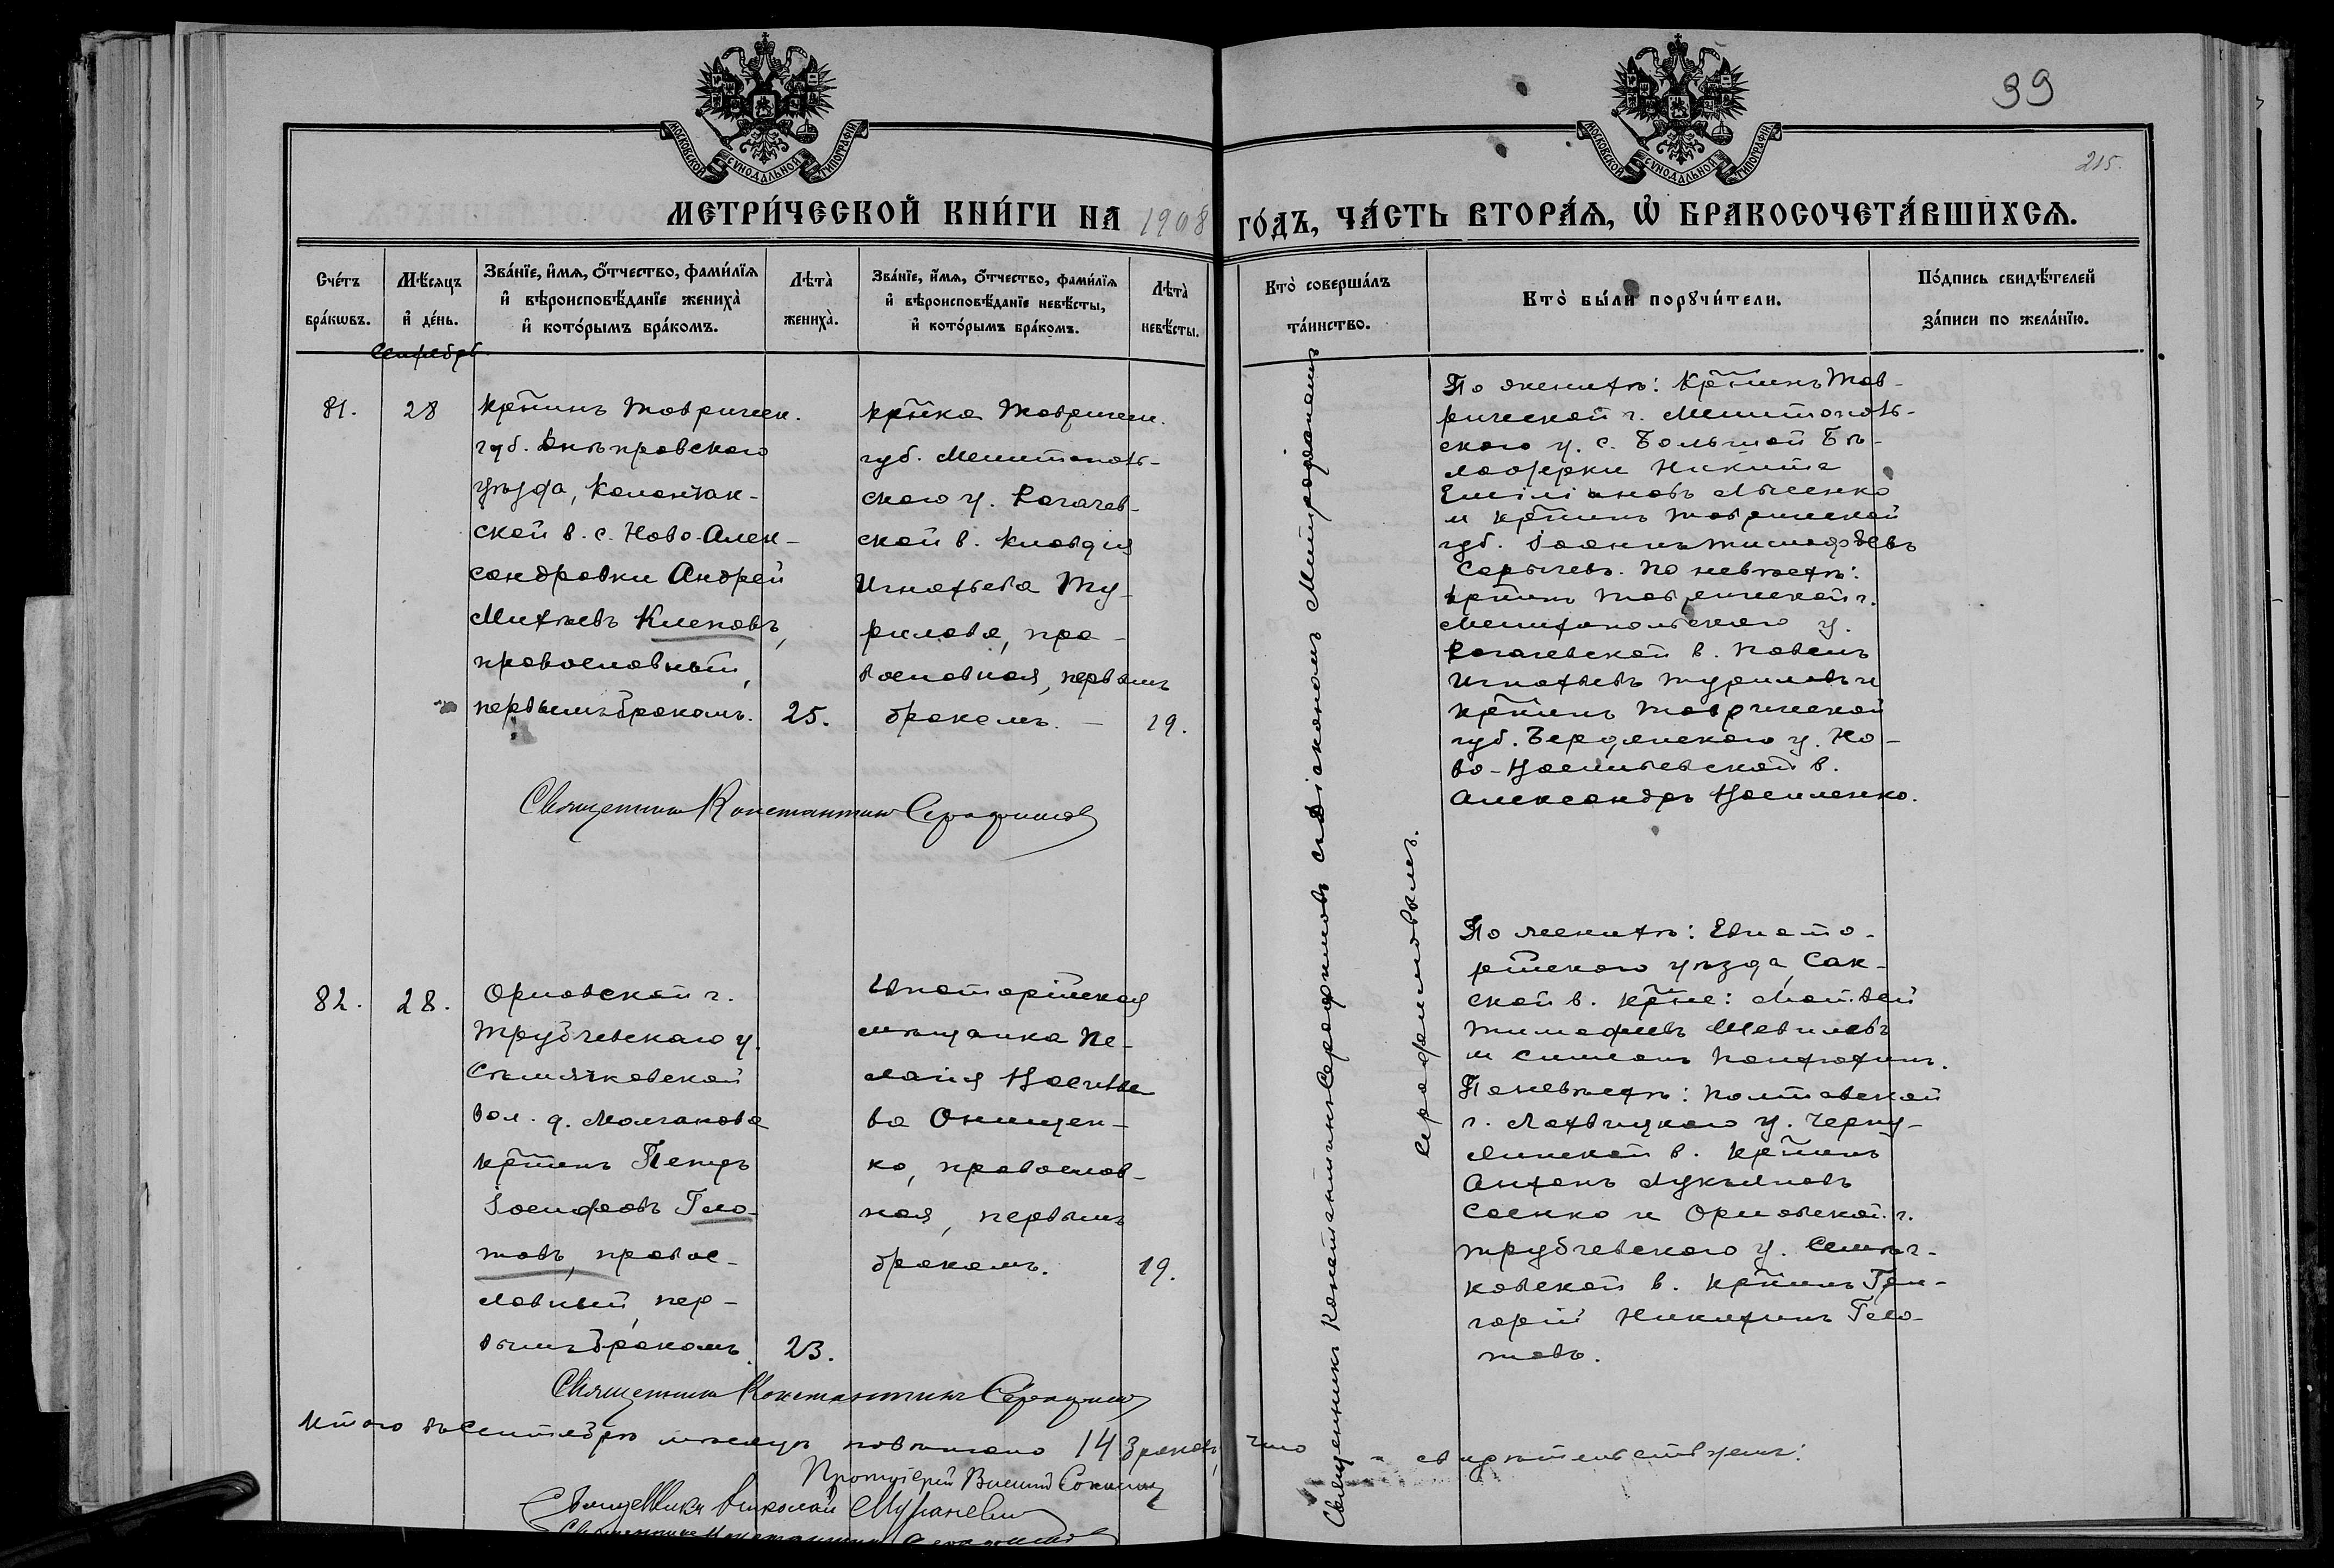 39
215.
МОСКОВСКОЙ СѴНОДАЛЬНОЙ ТИПОГРАФІИ
МОСКОВСКОЙ СѴНОДАЛЬНОЙ ТИПОГРАФІИ
МЕТРИ́ЧЕСКОЙ КНИ́ГИ НА 1908 ГО́ДЪ, ЧА́СТЬ ВТОРА́Ѧ, Ѡ҆ БРАКОСОЧЕТА́ВШИХСѦ.
Сче́тъ
бра́кѡвъ.
Мѣ́сяцъ
и҆ де́нь.
Зва́нїе, и҆́мѧ, ѻ҆́тчество, фами́лїѧ
и҆ вѣроисповѣ́данїе жениха̀
и҆ кото́рымъ бра́комъ.
Лѣта̀
жениха̀.
Зва́нїе, и҆́мѧ, ѻ҆́тчество, фами́лїѧ
и҆ вѣроисповѣ́данїе невѣ́сты,
и҆ кото́рымъ бра́комъ.
Лѣта̀
невѣ́сты.
Кто̀ соверша́лъ
та́инство.
Кто̀ бы́ли порꙋчи́тели.
По́дпись свидѣ́телей
за́писи по жела́нїю.
Сентябрь
81.
28
крпинъ Тавричес.
губ. Днѣпровскаго
уѣзда, Каланчак-
ской в. с. Ново-Алек-
сандровки Андрей
Михѣевъ Клеповъ,
православный,
первымъ бракомъ.
25.
крпнка Тавричес.
губ. Мелитополь-
скаго у. Рогачев-
ской в. Клавдія
Игнатьева Ту-
рилова, пра-
вославная, первымъ
бракомъ. —
19.
Священникъ Константинъ Серафимовъ
Священникъ Константинъ Серафимовъ съ діакономъ Митрофаномъ
Серафимовымъ.
По женихѣ: Крпинъ Тав-
рической г. Мелитополь-
скаго у. с. Большой Бѣ-
лозерки Никита
Емиліановъ Лысенко
и крпинъ Таврической
губ. Іоаннъ Тимофѣевъ
Сарычевъ. По невѣстѣ:
крпинъ Таврической г.
Мелитопольскаго у.
Рогачевской в. Павелъ
Игнатьевъ Туриловъ и
крпинъ Таврической
губ. Бердянскаго у. Но-
во-Васильевской в.
Александръ Василенко.
82.
28.
Орловской г.
Трубчевскаго у.
Сѣмячковской
вол. д. Молчанова
крпинъ Петръ
Іосифовъ Гло-
товъ, правос-
лавный, пер-
вымъ бракомъ.
23.
Евпаторійская
мѣщанка Пе-
лагія Василье-
ва Онищен-
ко, православ-
ная, первымъ
бракомъ.
19.
По женихѣ: Евпато-
рійскаго уѣзда, Сак-
ской в. крпне: Матвѣй
Тимофеевъ Шевилевъ
и Симеонъ Пантюхинъ.
По невѣстѣ: Полтавской
г. Лохвицкаго у. Черну-
хинской в. крпинъ
Антонъ Лукьяновъ
Саенко и Орловской г.
Трубчевскаго у. Семяч-
ковской в. крпинъ Гри-
горій Никитинъ Гло-
товъ.
Священникъ Константинъ Серафимовъ
Итого въ Сентябрѣ мѣсяцѣ повѣнчано 14 браковъ, что свидѣтельствуемъ:
Протоіерей
Священникъ Николай
Священникъ Константинъ Серафимовъ